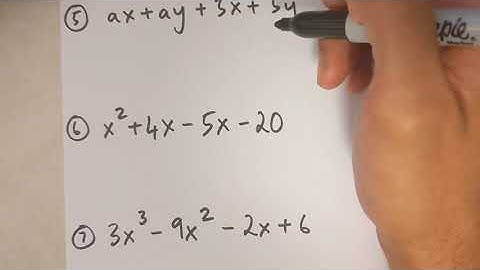 ⑤ ax + ay + 3x + 3y
⑥ x² + 4x - 5x - 20
⑦ 3x³ - 9x² - 2x + 6